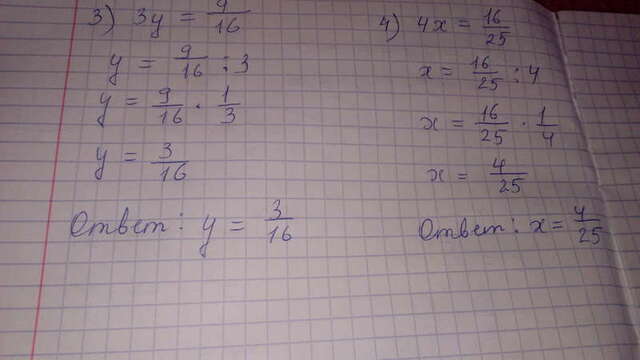 3) 3y = 9/16
y = 9/16 : 3
y = 9/16 · 1/3
y = 3/16
Ответ: y = 3/16
4) 4x = 16/25
x = 16/25 : 4
x = 16/25 · 1/4
x = 4/25
Ответ: x = 4/25